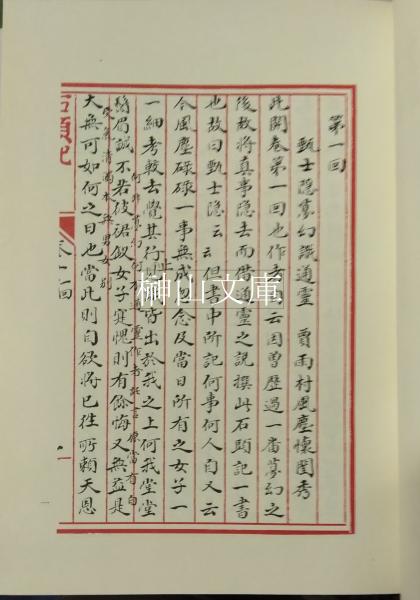 第一回
甄士隱夢幻識通靈　賈雨村風塵懷閨秀
此開卷第一回也作者自云因曾歷過一番夢幻之
後故將真事隱去而借通靈之說撰此石頭記一書
也故曰甄士隱云云但書中所記何事何人自又云
今風塵碌碌一事無成忽念及當日所有之女子一
一細考較去覺其行止皆出於我之上何我堂堂
鬚眉誠不若彼裙釵女子寔愧則有餘悔又無益是
大無可如何之日也當此則自欲將已往所賴天恩
石頭記
榊山文庫